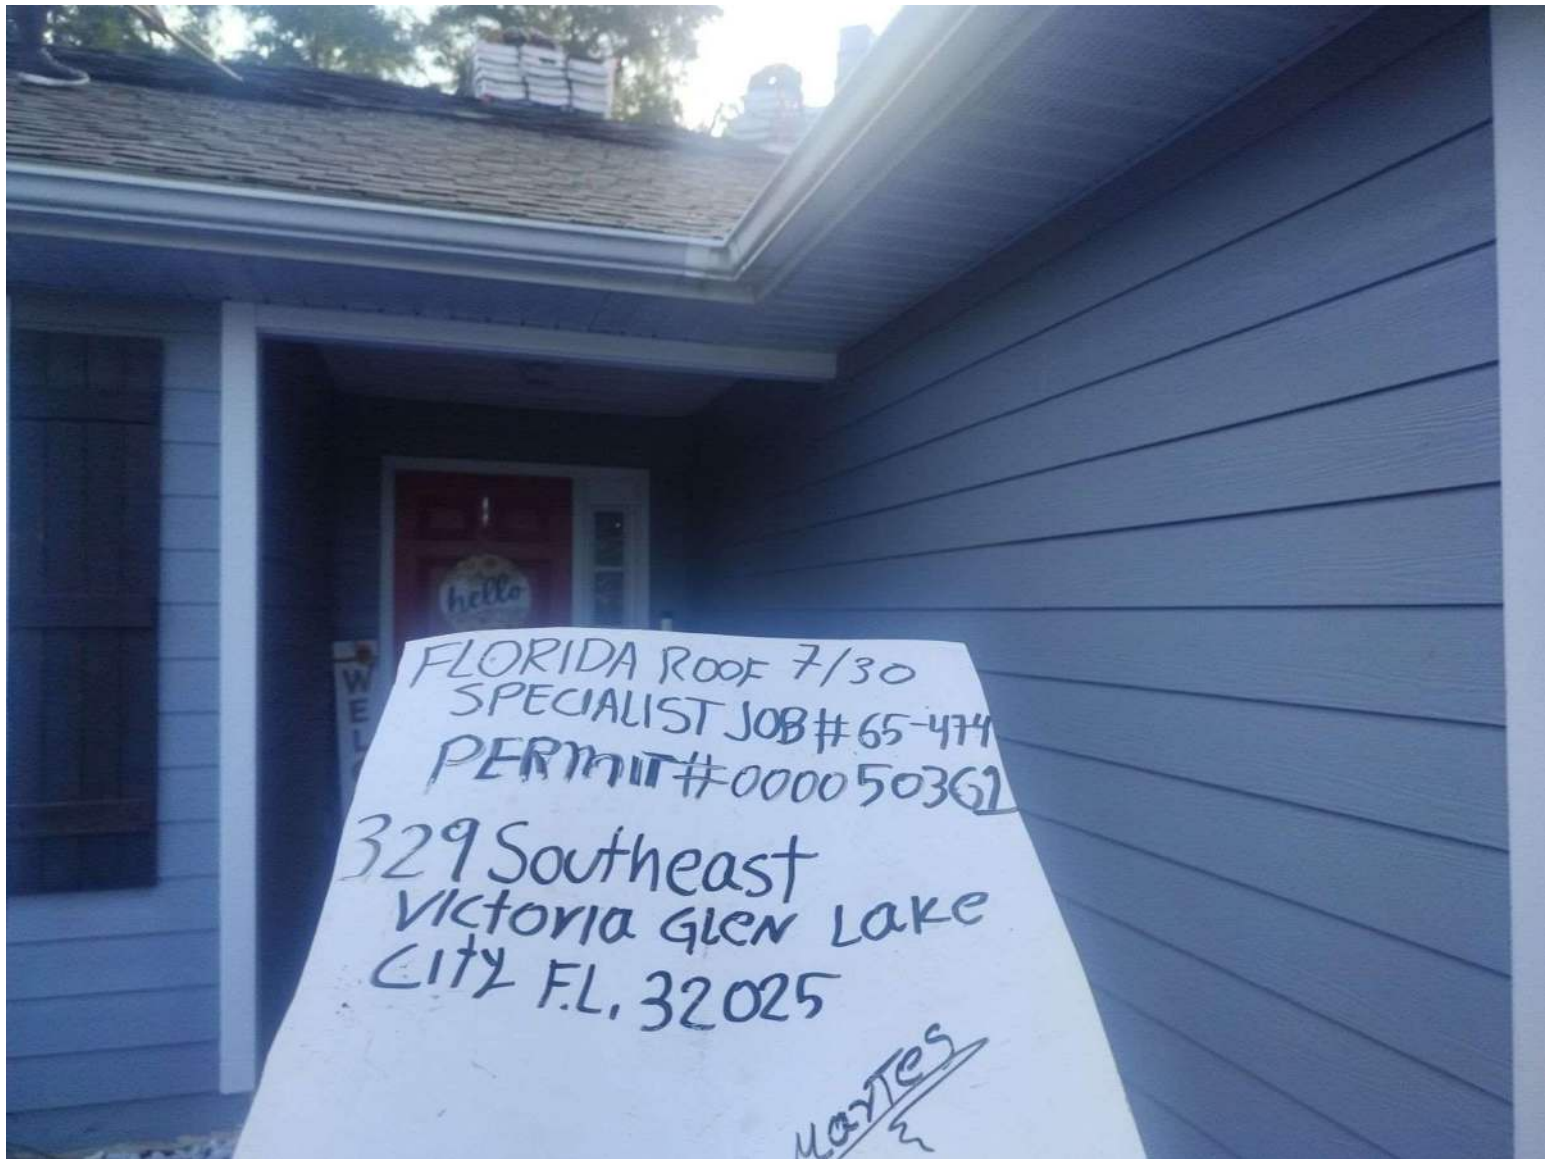 hello
W
E
L
FLORIDA ROOF 7/30
SPECIALIST JOB # 65-474
PERMIT # 0000 50362
329 Southeast
Victoria GLEN Lake
City F.L. 32025
Martes